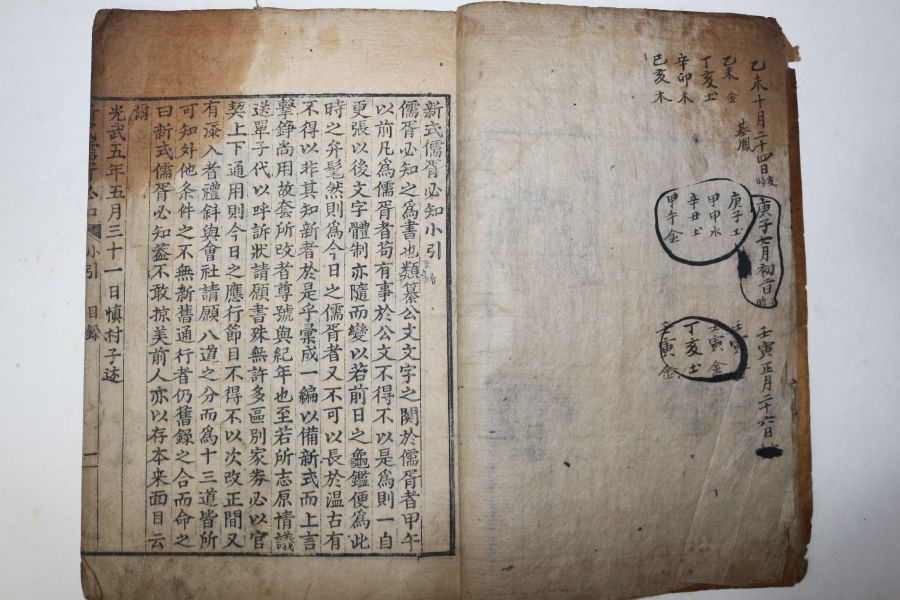 乙未十月二十四日亥時
乙未 金
丁亥 土
辛卯 木
己亥 木
庚子七月初二日
庚子 土
甲申 水
辛丑 土
甲午 金
壬寅正月二十六日
壬寅
壬寅 金
丁亥 土
壬寅 金
新式儒胥必知小引
儒胥必知之爲書也類纂公文文字之関於儒胥者甲午
以前凡爲儒胥者苟有事於公文不得不以是爲則一自
更張以後文字體制亦隨而變以若前日之龜鑑便爲此
時之弁髦然則爲今日之儒胥者又不可以長於温古有
不得以非其知新者於是乎彙成一編以備新式而上言
擊錚尚用故套所改者尊號與紀年也至若所志原情議
送單子代以呼訴狀請願書殊無許多區別家券必以官
契上下通用則今日之應行節目不得不以次改正間又
有添入者禮斜與會社請願八道之分而爲十三道皆所
可知外他条件之不無新舊通行者仍舊錄之合而命之
曰新式儒胥必知盖不敢掠美前人亦以存本來面目云
爾
光武五年五月三十一日愼村子迻
小引 目錄 一